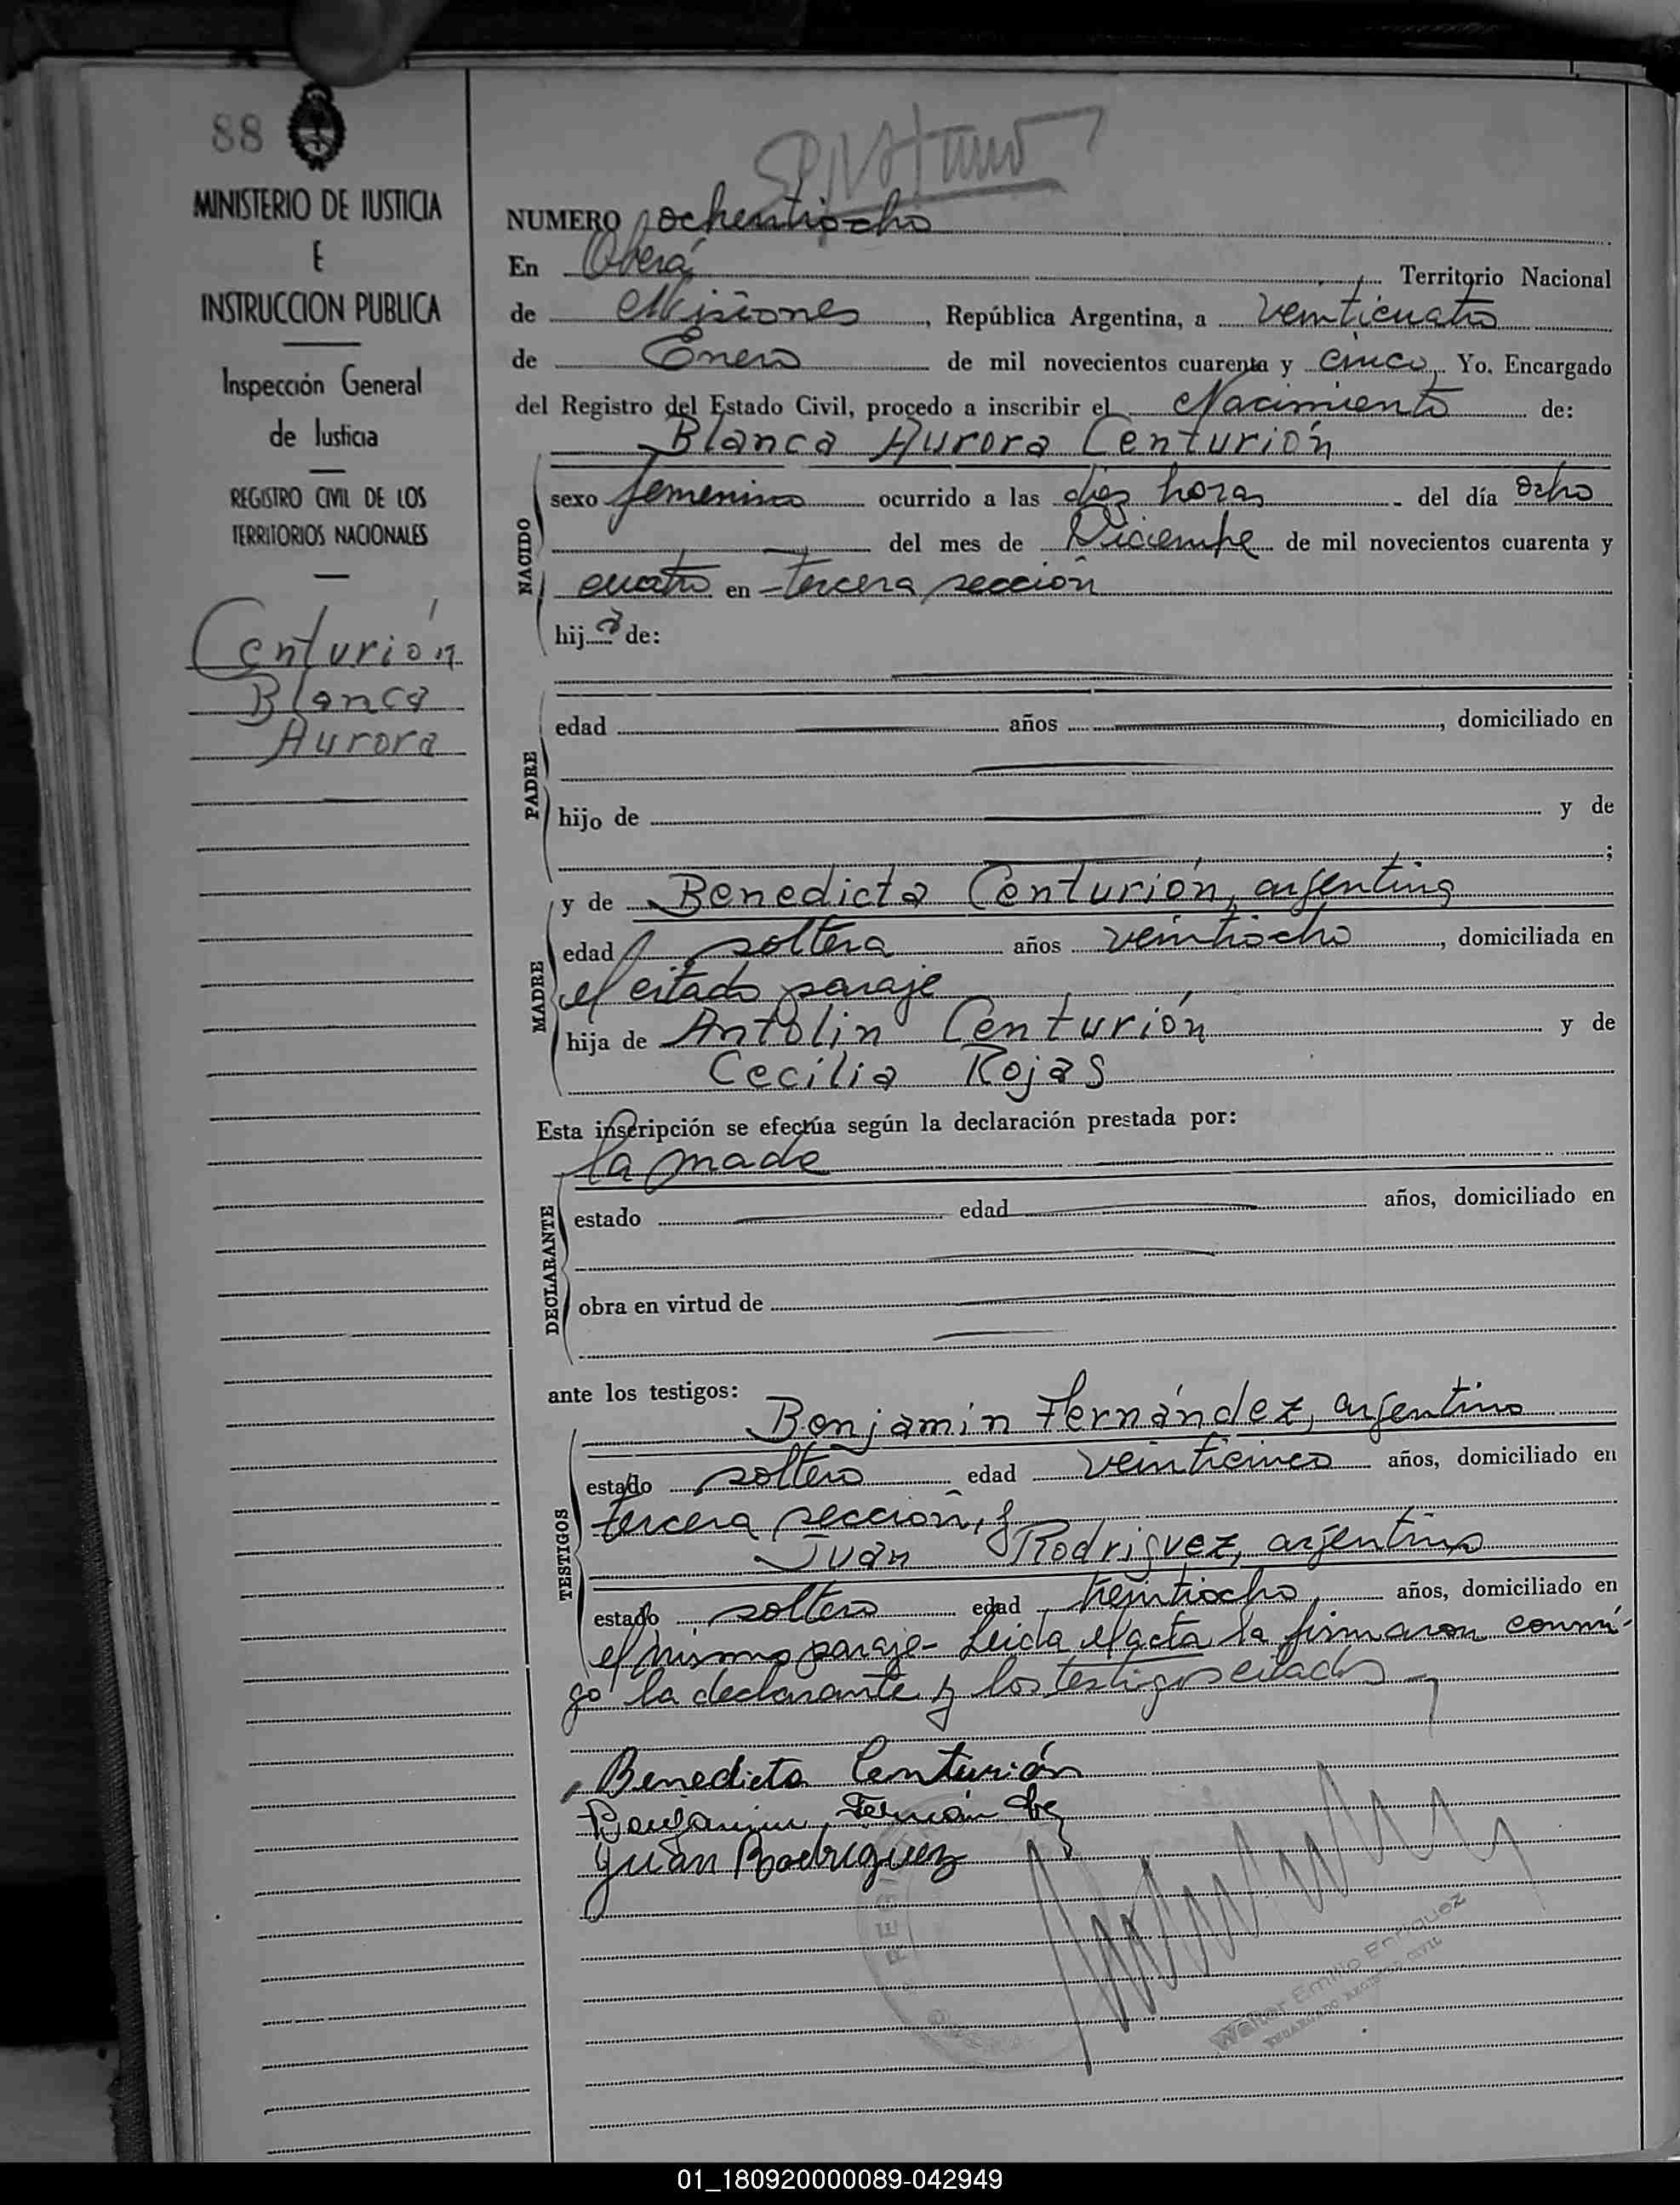 88
MINISTERIO DE JUSTICIA
E
INSTRUCCION PUBLICA
Inspección General
de Justicia
REGISTRO CIVIL DE LOS
TERRITORIOS NACIONALES
Centurión
Blanca
Aurora
NUMERO ochentiocho
En Oberá Territorio Nacional
de Misiones, República Argentina, a veinticuatro
de Enero de mil novecientos cuarenta y cinco, Yo. Encargado
del Registro del Estado Civil, procedo a inscribir el Nacimiento de:
Blanca Aurora Centurión
NACIDO
sexo femenino ocurrido a las diez horas del día ocho
del mes de Diciembre de mil novecientos cuarenta y
cuatro en tercera sección
hija de:
PADRE
edad años , domiciliado en
hijo de y de
;
MADRE
y de Benedicta Centurión, argentina
edad soltera años veintiocho, domiciliada en
el citado paraje
hija de Antolin Centurión y de
Cecilia Rojas
Esta inscripción se efectúa según la declaración prestada por:
la madre
DECLARANTE
estado edad años, domiciliado en
obra en virtud de
ante los testigos:
TESTIGOS
Benjamin Fernández, argentino
estado soltero edad veinticinco años, domiciliado en
tercera sección, y
Juan Rodriguez, argentino
estado soltero edad treintiocho, años, domiciliado en
el mismo paraje- Leida el acta la firmaron conmi-
go la declarante y los testigos citados
Benedicta Centurión
Benjamin Fernández
Juan Rodriguez
Walter Emilio Enriquez
ENCARGADO REGISTRO CIVIL
01_180920000089-042949